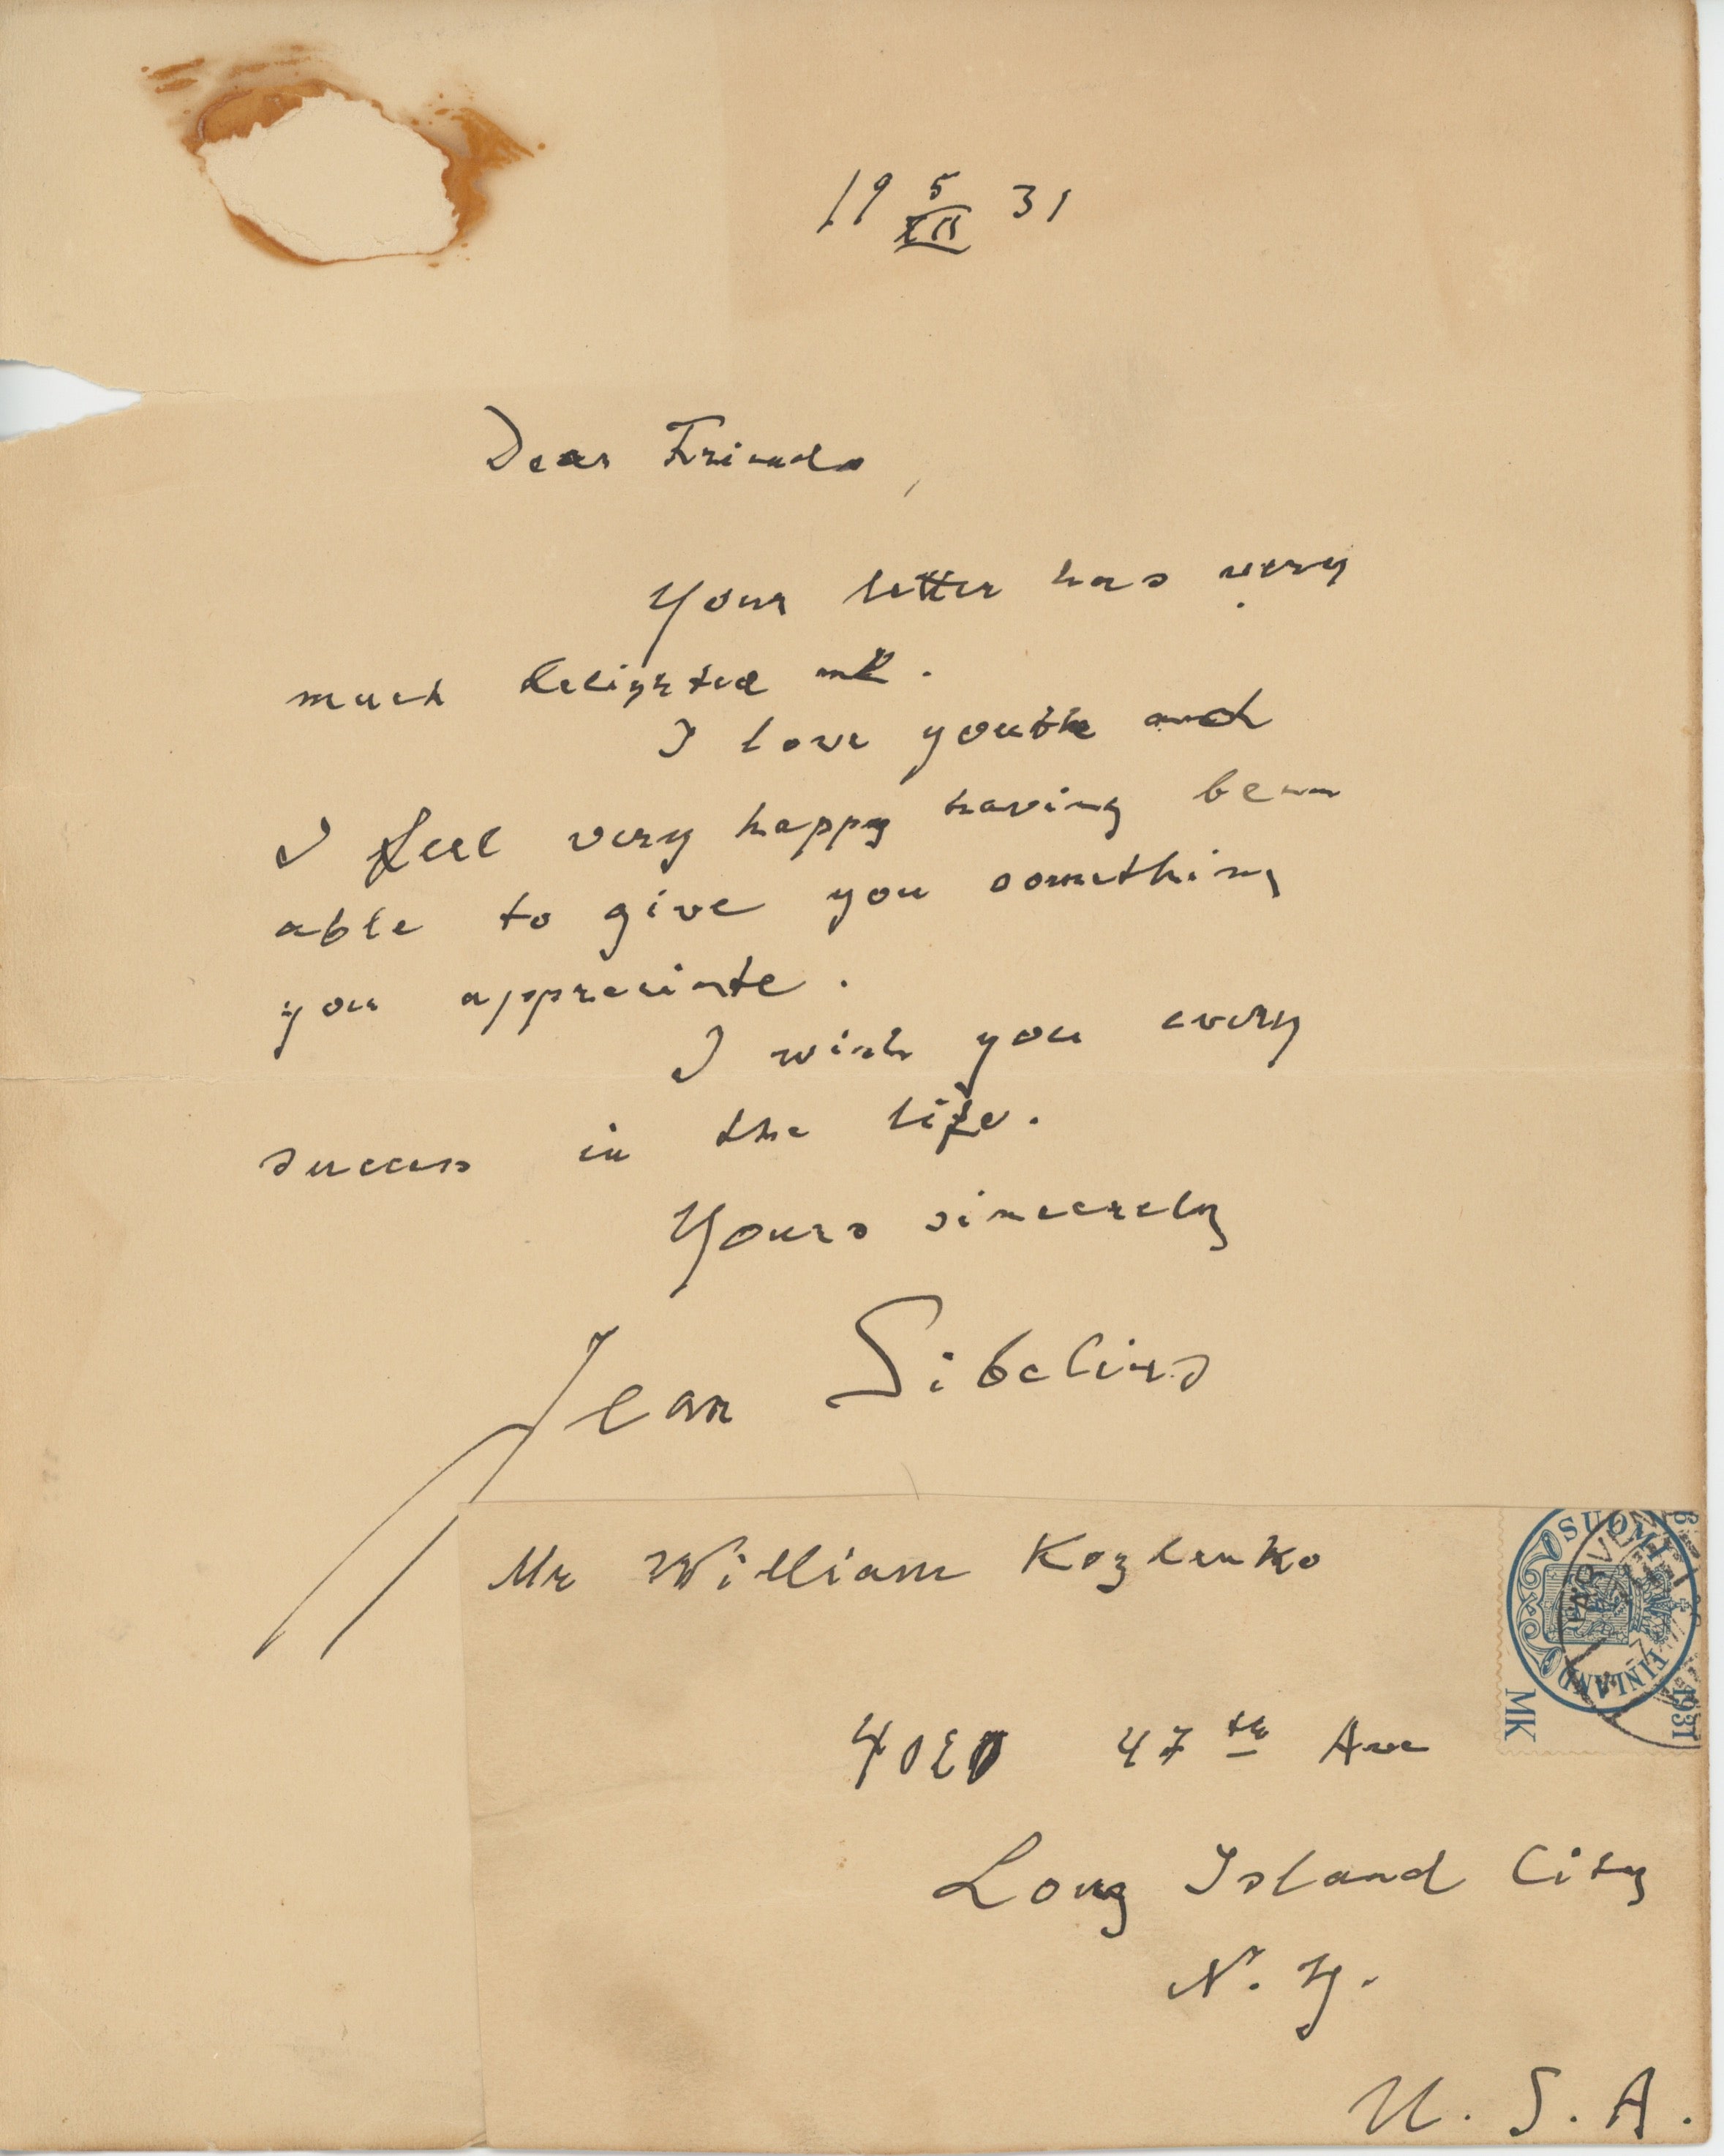 19 5/XII 31
Dear Friends,
Your letter has very
much delighted me.
I love youth and
I feel very happy having been
able to give you something
you appreciate.
I wish you every
success in the life.
Yours sincerely
Jean Sibelius
Mr William Kozlenko
SUOMI
FINLAND
MK
1931
4020 47th Ave
Long Island City
N. Y.
U. S. A.